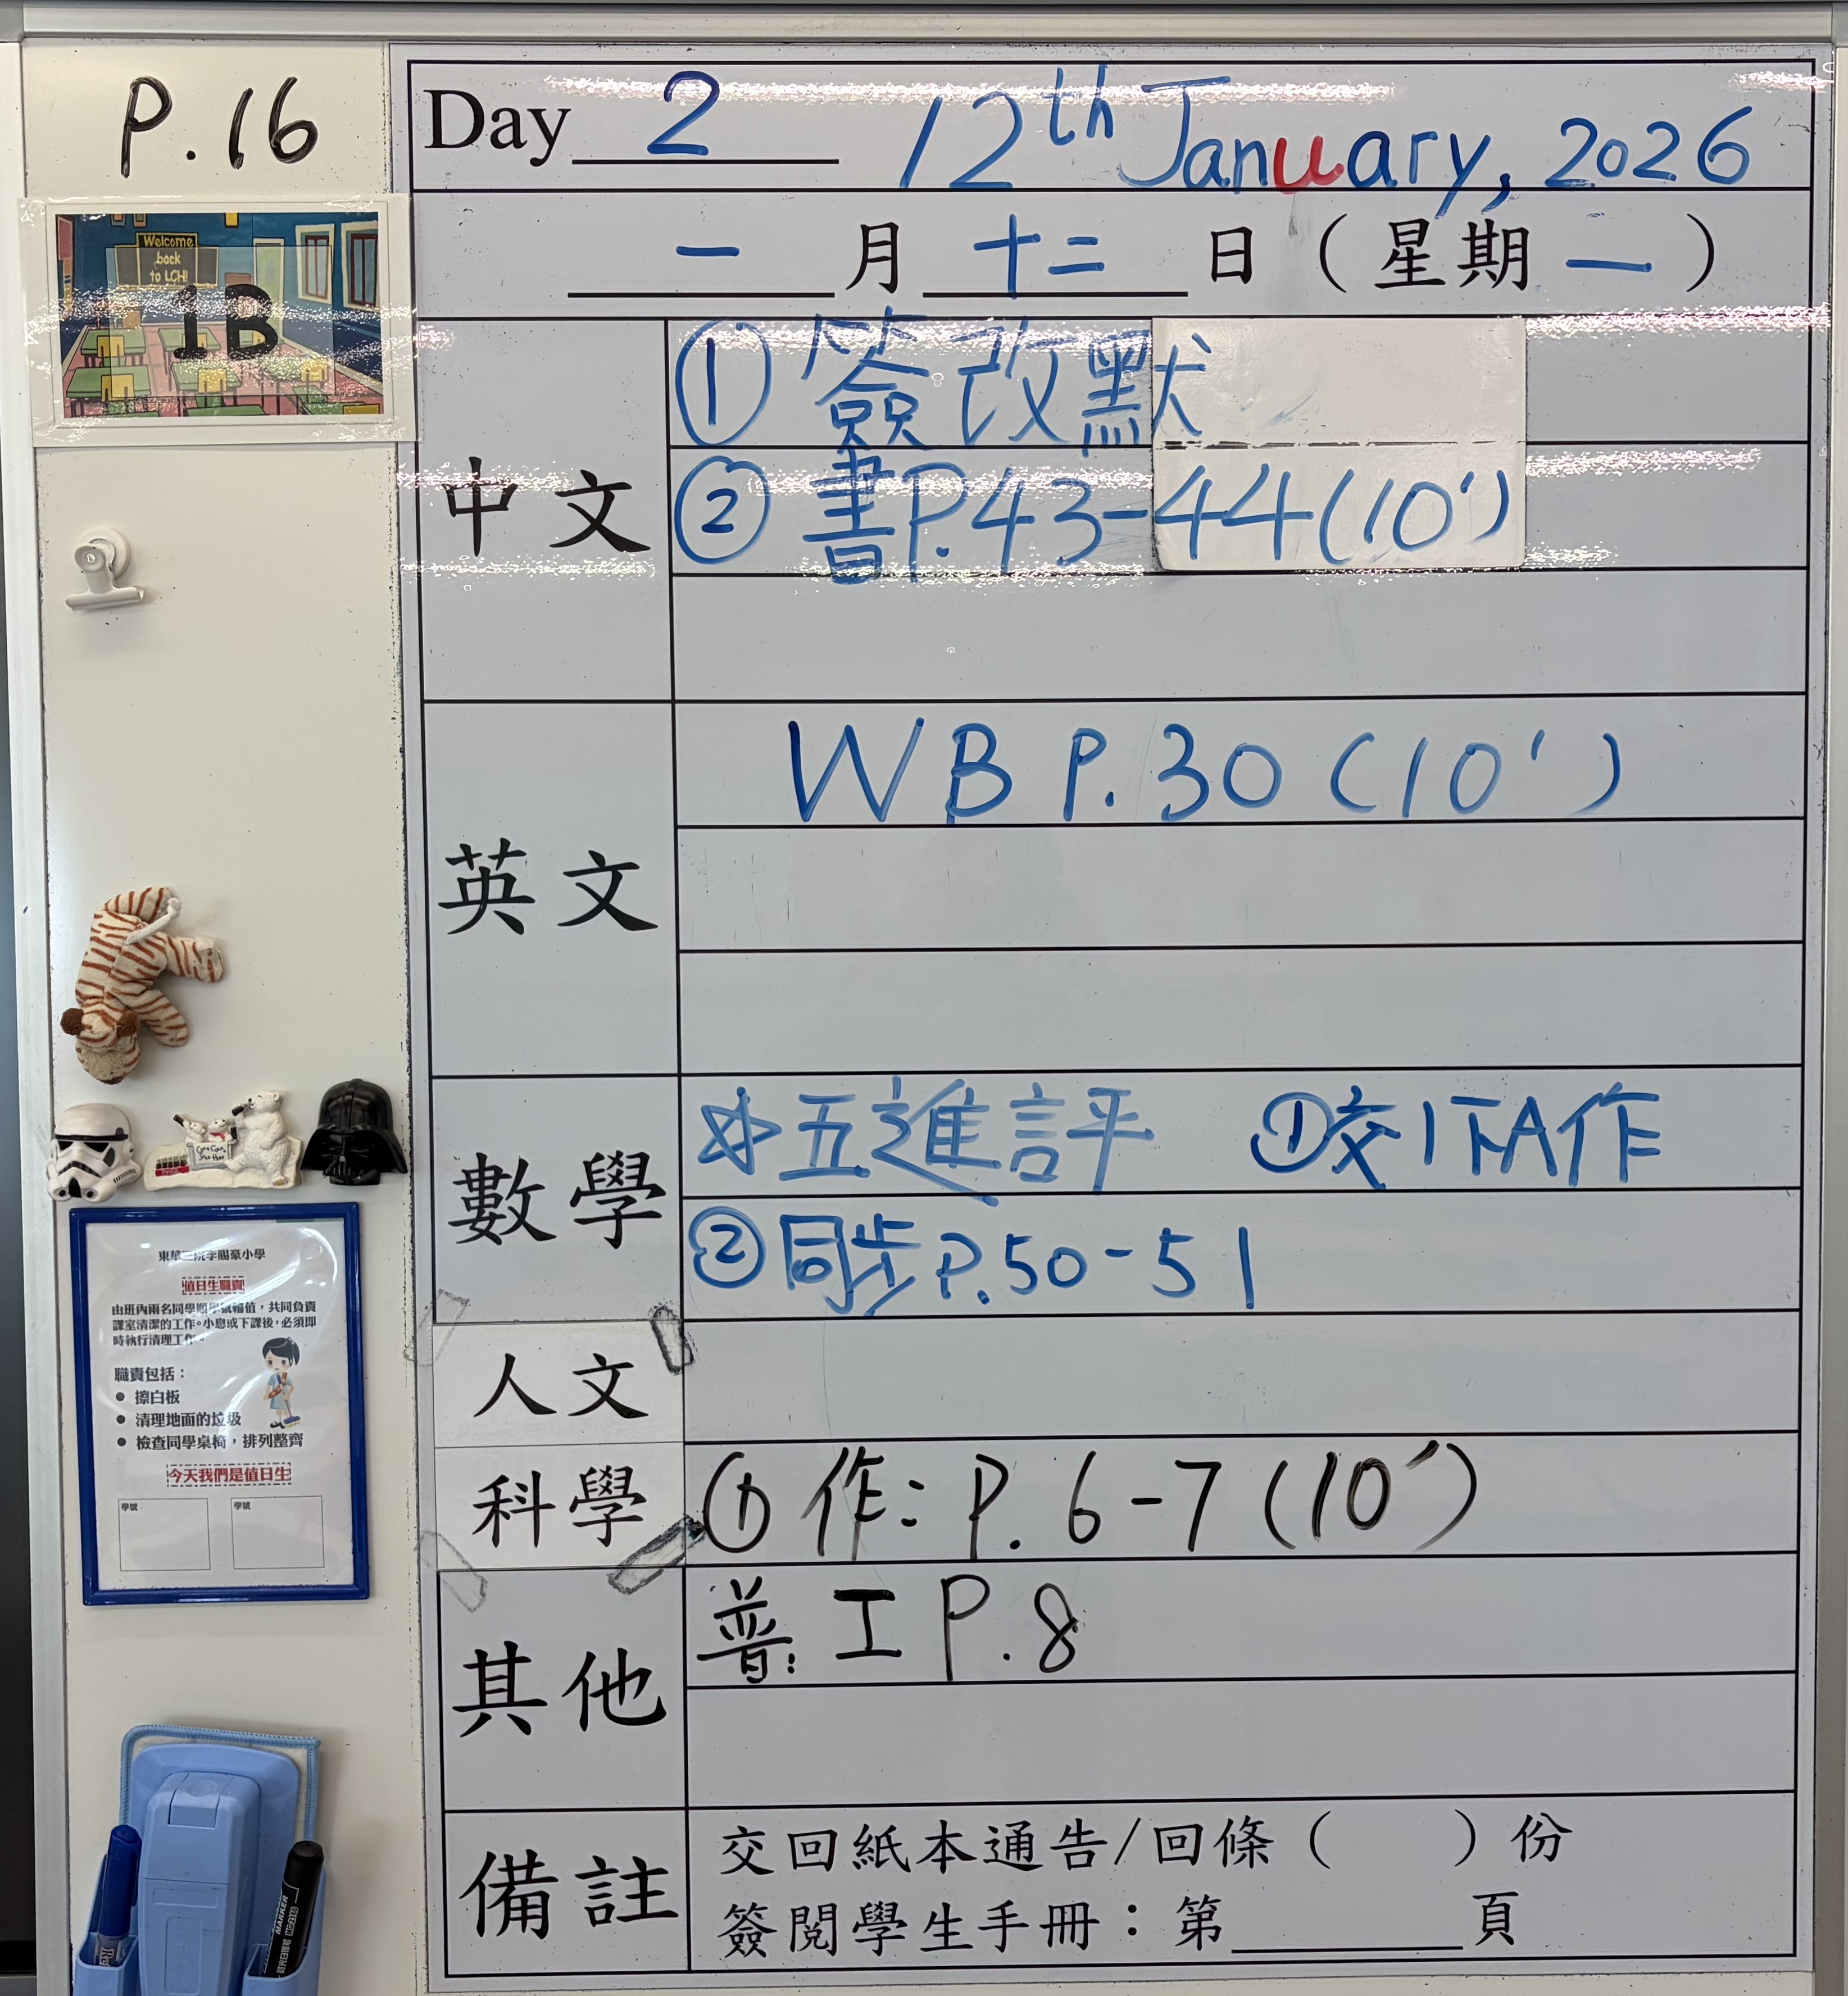 P.16
Day 2 12th January, 2026
一 月 十二 日（星期 一）
Welcome
back
to LCH!
1B
中文
① 簽改默
② 書P.43-44(10')
英文
WB P.30 (10')
數學
☆五進評 ①交1下A作
②同步P.50-51
人文
科學
① 作: P.6-7(10')
其他
普: 工 P.8
備註
交回紙本通告/回條（ ）份
簽閱學生手冊：第 頁
東華三院李賜豪小學
值日生職責
由班內兩名同學順學號輪值，共同負責
課室清潔的工作。小息或下課後，必須即
時執行清理工作。
職責包括：
• 擦白板
• 清理地面的垃圾
• 檢查同學桌椅，排列整齊
今天我們是值日生
學號 學號
MARKER